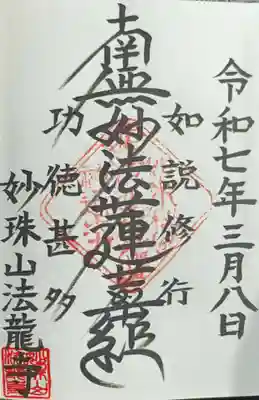 令和七年三月八日
如説修行
南無妙法蓮華経
功徳甚多
妙珠山法龍寺